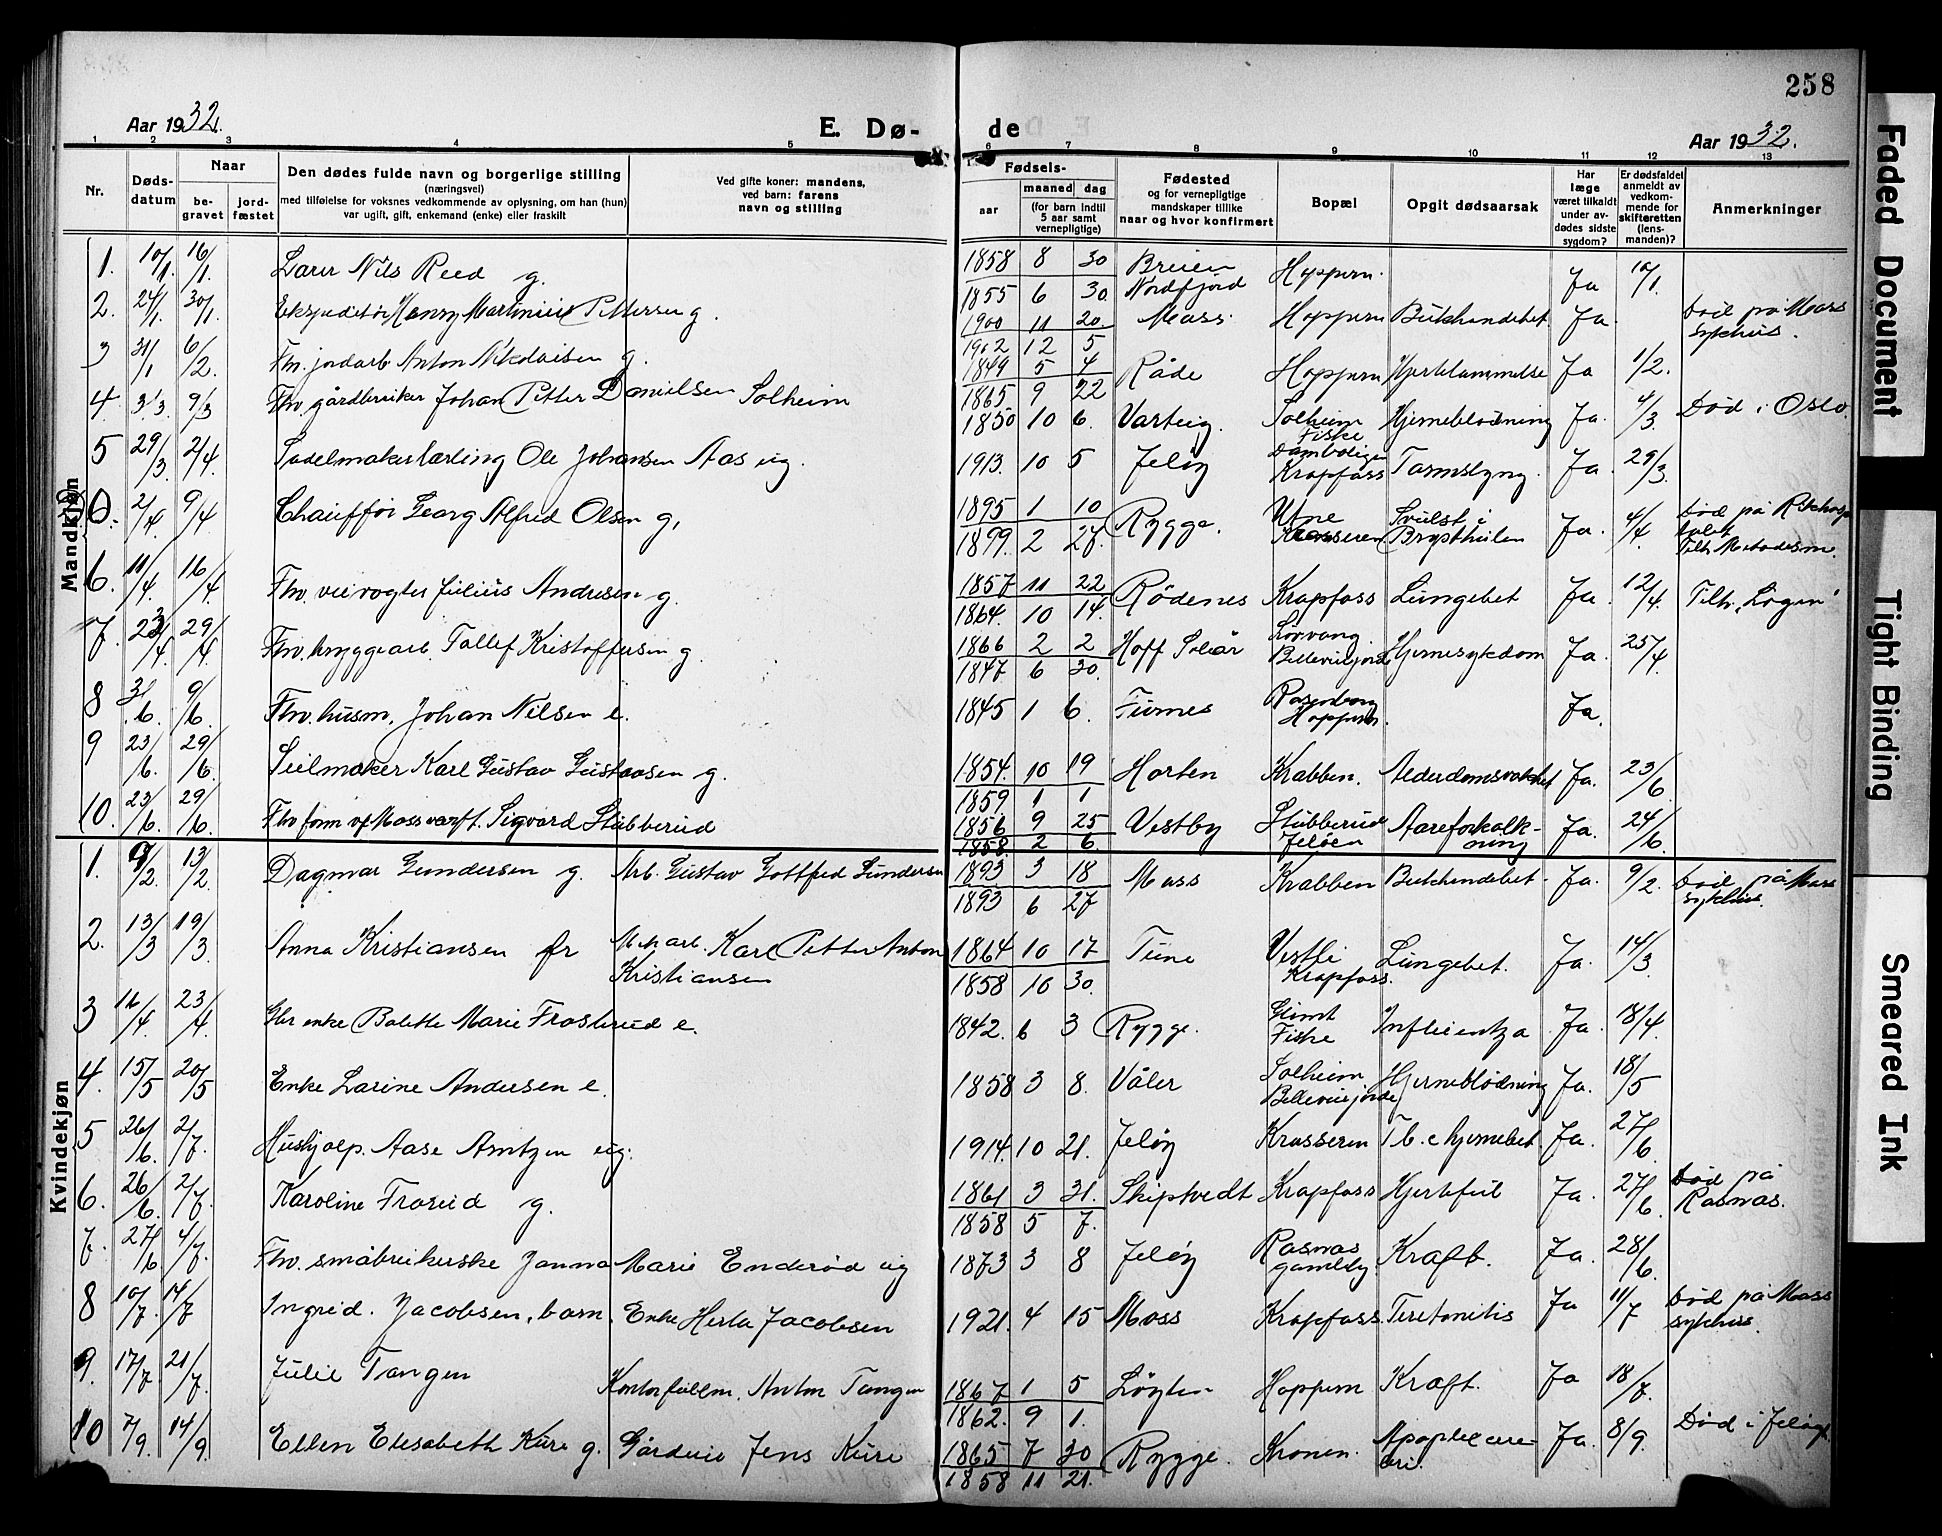 258
Aar 1932.
E. Dø-
de
Aar 1932.
1 2 3 4 5 6 7 8 9 10 11 12 13
Nr.
Døds-
datum
Naar
be-
gravet
jord-
fæstet
Den dødes fulde navn og borgerlige stilling
(næringsvei)
med tilføielse for voksnes vedkommende av oplysning, om han (hun)
var ugift, gift, enkemand (enke) eller fraskilt
Ved gifte koner: mandens,
ved barn: farens
navn og stilling
Fødsels-
aar
maaned dag
(for barn indtil
5 aar samt
vernepligtige)
Fødested
og for vernepligtige
mandskaper tillike
naar og hvor konfirmert
Bopæl
Opgit dødsaarsak
Har
læge
været tilkaldt
under av-
dødes sidste
sygdom?
Er dødsfaldet
anmeldt av
vedkom-
mende for
skifteretten
(lens-
manden)?
Anmerkninger
Mandkjøn
1. 10/1. 16/1. Nils Reed g. 1858 8 30 Nordfjord Hoppern. Ja 12/1.
1855 6 30.
2. 24/1. 30/1. Ekspeditør Henry Martinius Pettersen g. 1900 11 20. Moss Hoppern Bukhindebet. Ja. Død på Moss
sykehus.
1902 12 5
3 31/1 6/2. Fhv. jordarb Anton Nikolaisen g. 1849 5 4 Råde Hoppern Hjertelammelse Ja 1/2.
1865 9 22
4. 3/3. 9/3 Fhv. gårdbruker Johan Petter Danielsen Solheim 1850 10 6. Varteig. Solheim
Fiske Hjerneblødning Ja. 4/3. Død i Oslo.
5 29/3 2/4. Sadelmakerlærling Ole Johansen Aas ug. 1913. 10 5 Jeløy Damboligen
Krapfoss Tarmslyng. Ja. 29/3.
2/4. 9/4 Chauffør Georg Alfred Olsen g. 1895 1 10 Rygge. Krasseren Svulst i
Brysthulen Ja. 4/4. Død på Rikshosp
1899. 2 27.
6. 11/4. 16/4. Fhv. veivogter Julius Andresen g. 1857 11 22 Rödenes Krapfoss Lungebet Ja. 12/4. Tilh. "Logen"
1864. 10 14.
7. 23/4. 29/4. Fhv. bryggearb. Tollef Kristoffersen g. 1866 2 2 Hoff Solør
Bellevuejordet Hjernesykdom Ja. 25/4
1847 6 30.
8 3/6. 9/6. Fhv. husm. Johan Nilsen e. 1845 1 6. Furnes Rosenborg
Hoppern. Ja.
9 23/6. 29/6. Seilmaker Karl Gustav Gustavsen g. 1854. 10 19 Horten Krabben. Alderdomsvakhet Ja. 23/6.
1859. 1 1
10. 23/6. 29/6. Fhv form v/ Moss værft. Sigvard Stubberud 1856 9 25 Vestby Stubberud
Jeløen Aareforkalk-
ning Ja. 24/6.
1858. 2 6.
Kvindekjøn
1. 9/2. 13/2. Dagmar Gundersen g. Arb. Gustav Gottfred Gundersen 1893 3 18 Moss Krabben Bukhindebet. Ja. 9/2. Død på Moss
sykehus.
1893 6 27
2. 13/3 19/3. Anna Kristiansen fr Mek arb. Karl Petter Anton
Kristiansen 1864 10 17 Tune Vestli
Krapfoss. Lungebet. Ja. 14/3.
1858 10 30.
3 16/4. 23/4. Gbr enke Bolette Marie Frosterud e. 1842. 6 3 Rygge. Glimt
Fiske Influentza Ja. 18/4
4. 15/5 20/5 Enke Larine Andersen e. 1858 3 8. Våler Solheim
Bellevuejordet Hjerneblödning Ja. 18/5
5 26/6. 2/7. Hushjelp. Aase Arntzen ug. 1914. 10 21. Jeløy Krasseren Tb. c hjernebet. Ja. 27/6.
6. 26/6. 2/7. Karoline Froreid g. 1861 3 31. Skiptvedt Krapfoss Hjertefeil Ja. 27/6. Død på
Rosnæs.
1858 5 7.
7. 27/6 4/7. Fhv. småbrukerske Janna Marie Enderød ug 1873 3 8 Jeløy Rosnæs
gamleby. Kræft. Ja. 28/6.
8 10/7. 14/7 Ingrid. Jacobsen, barn. Enke Herla Jacobsen 1921. 4 15 Moss Krapfoss. Peretonitis Ja 11/7 Død på Moss
sykhus.
9. 17/7 21/7. Julie Tangen Kontorfullm. Anton Tangen 1867 1 5 Løyten Hoppern Kræft. Ja 18/7.
1862. 9 1.
10 7/9. 14/9 Ellen Elisabeth Kure g. Gårdeier Jens Kure 1865 7 30 Rygge. Kronen. Ja. 8/9. Død i Jeløy.
1858 11 21.
Faded Document
Tight Binding
Smeared Ink